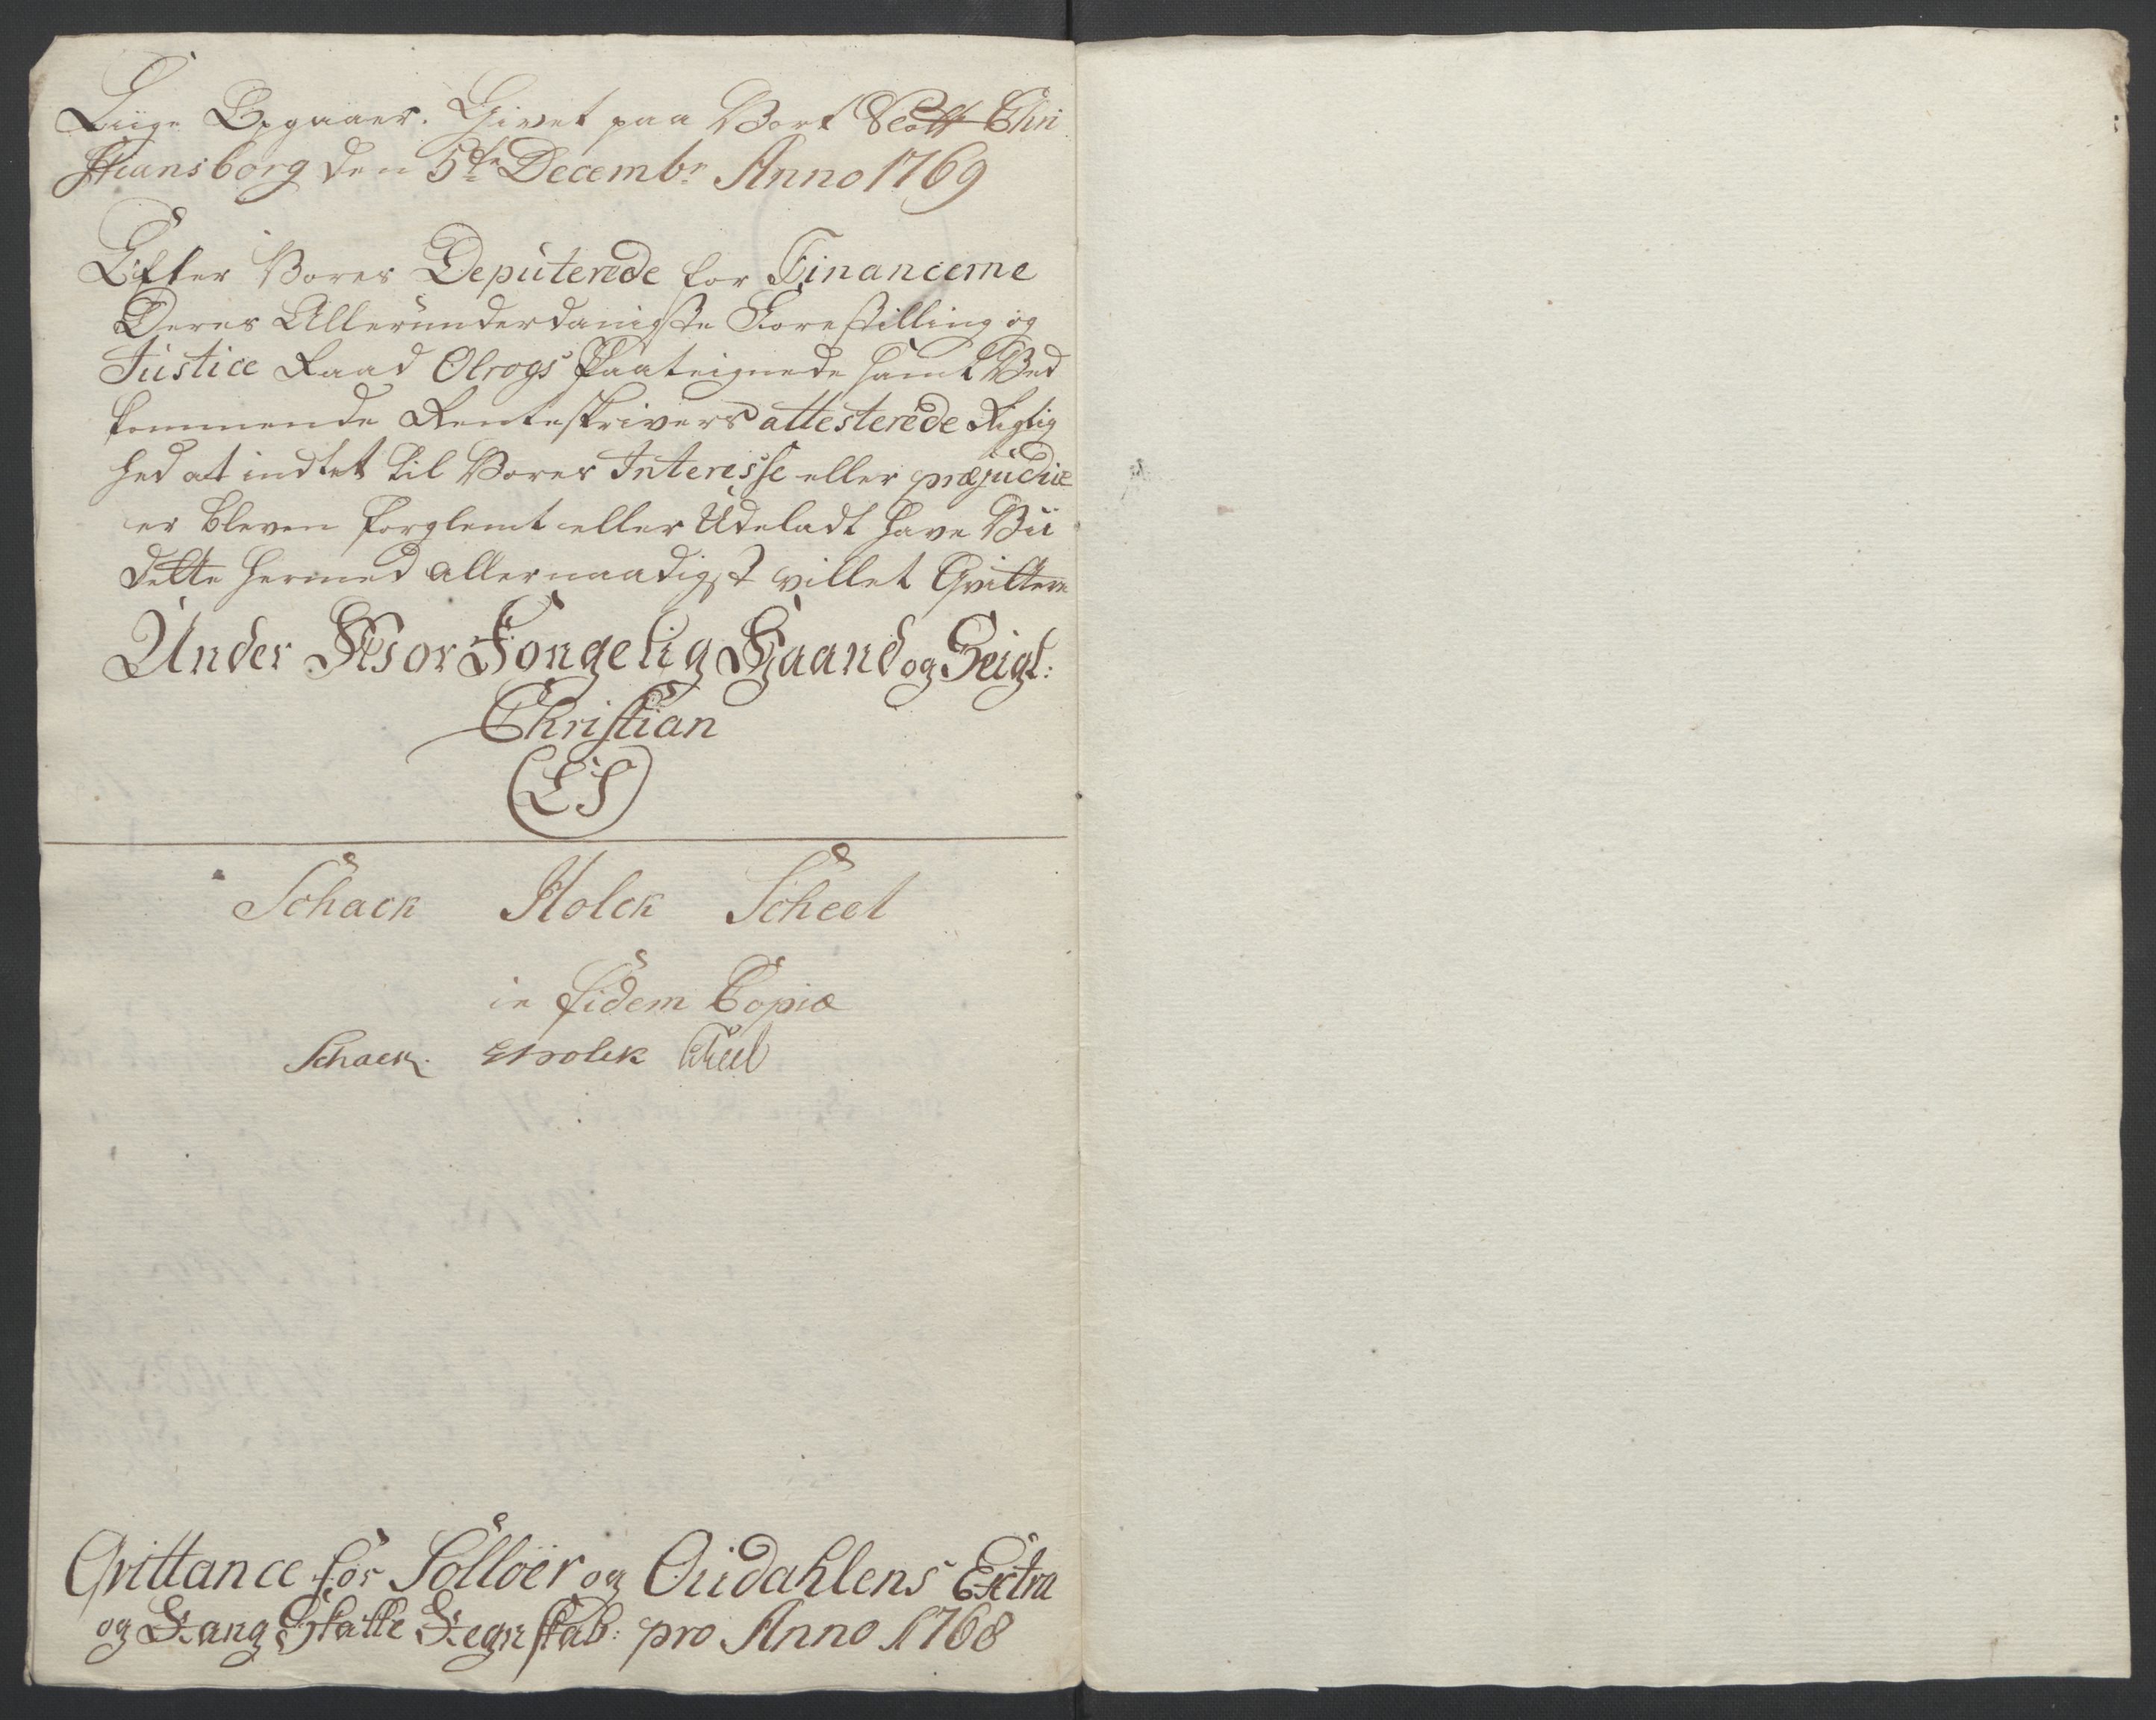 Liige Opgaaer. Givet paa Vort Slott Chri
stiansborg den 5te Decembr Anno 1769
Efter Vores Deputerede for Financerne
Deres Allerunderdanigste Forestilling og
Justice Raad Olrogs Paateignede samt Ved
kommende Renteskrivers attesterede Rigtig
hed at indtet til Vores Interesse eller præjudice
er bleven forglemt eller Udeladt have Vii
dette hermed allernaadigst villet Qvittere
Under Vor Kongelig Haand og Seigl:
Christian
(LS)
Schack Holck Scheel
in fidem Copiæ
Schack. Holck Scheel
Qvittance for Solløer og Oudahlens Extra
og Rang Skatte Regnskab: pro Anno 1768